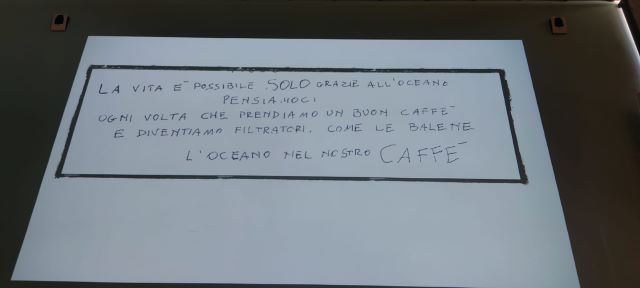 LA VITA È POSSIBILE SOLO GRAZIE ALL'OCEANO
PENSIAMOCI
OGNI VOLTA CHE PRENDIAMO UN BUON CAFFÈ
E DIVENTIAMO FILTRATORI, COME LE BALENE
L'OCEANO NEL NOSTRO CAFFÈ